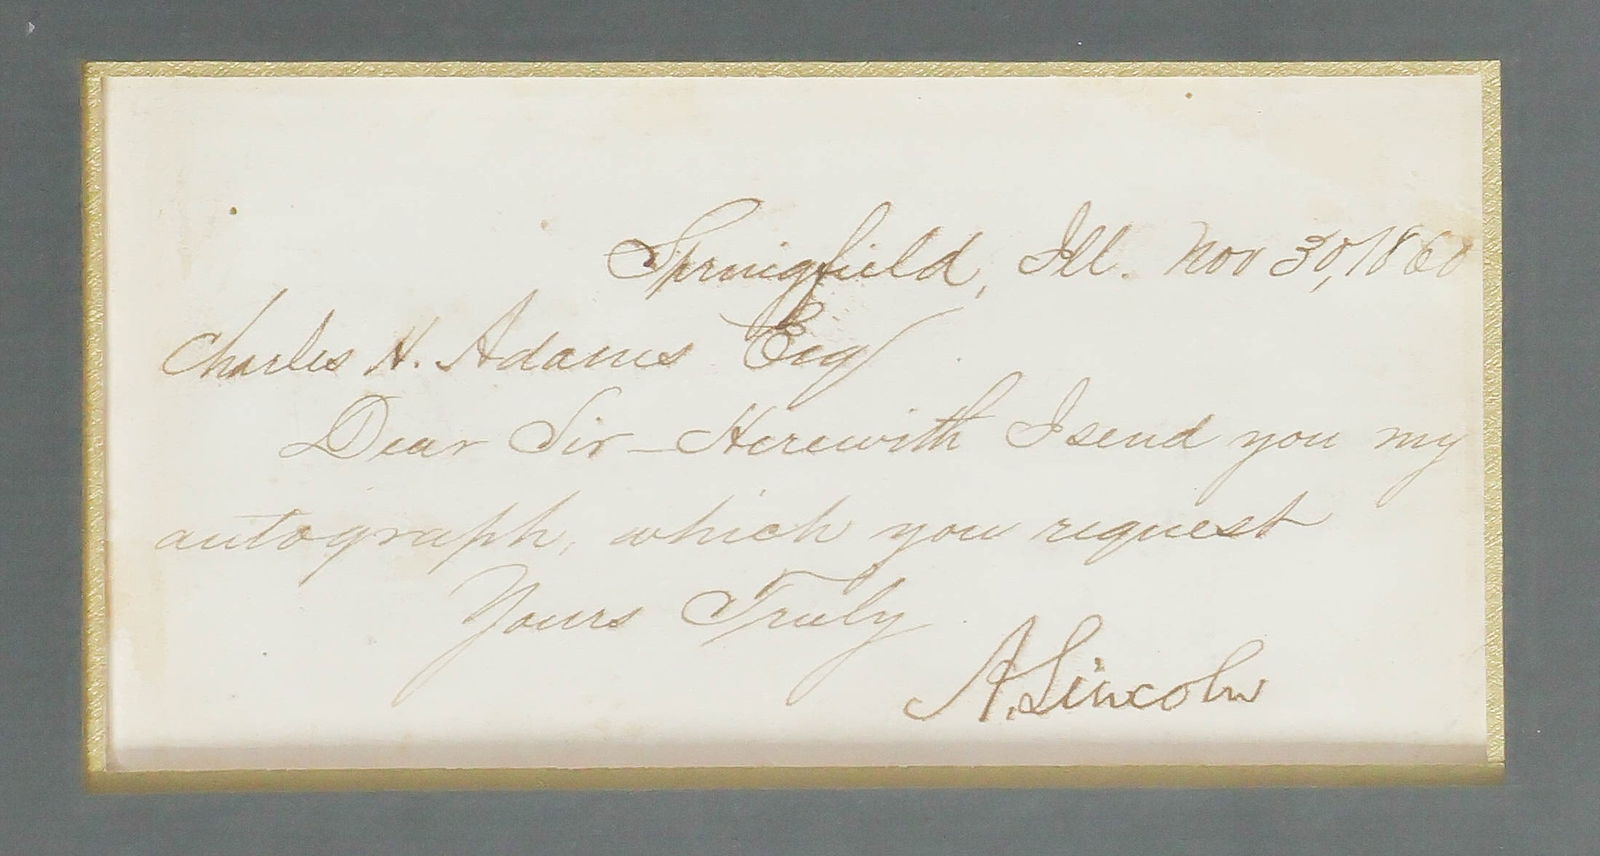 Springfield, Ill. Nov 30, 1860
Charles H. Adams Esq
Dear Sir — Herewith I send you my
autograph, which you request
Yours Truly
A. Lincoln